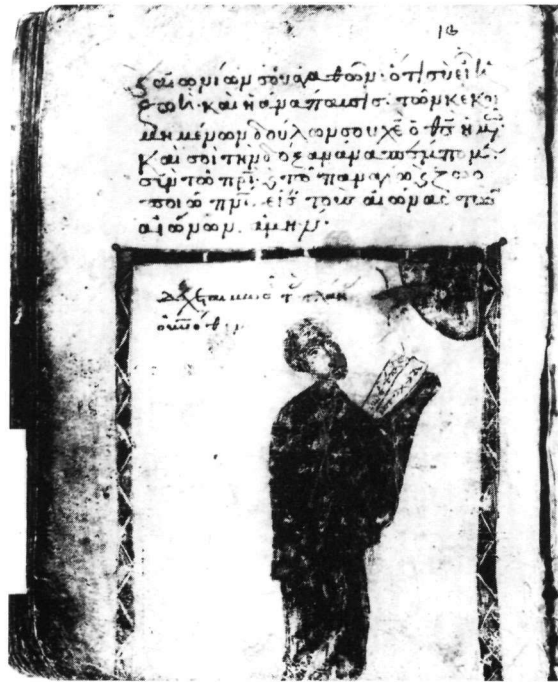 ς αἰωνίων σου ἀγαθῶν· ὅτι σὺ εἶ ἡ
ζωὴ· καὶ ἡ ἀνάπαυσις τῶν κεκοι
μημένων δούλων σου χε ὁ θς ἡμ
καὶ σοὶ τὴν δόξαν ἀναπέμπομ
σὺν τῶ πρι ς τῶ παναγίω ς ζωο
ποιῶ πνι. εἰς τοὺς αἰῶνας τῶν
αἰώνων. ἀμήν·